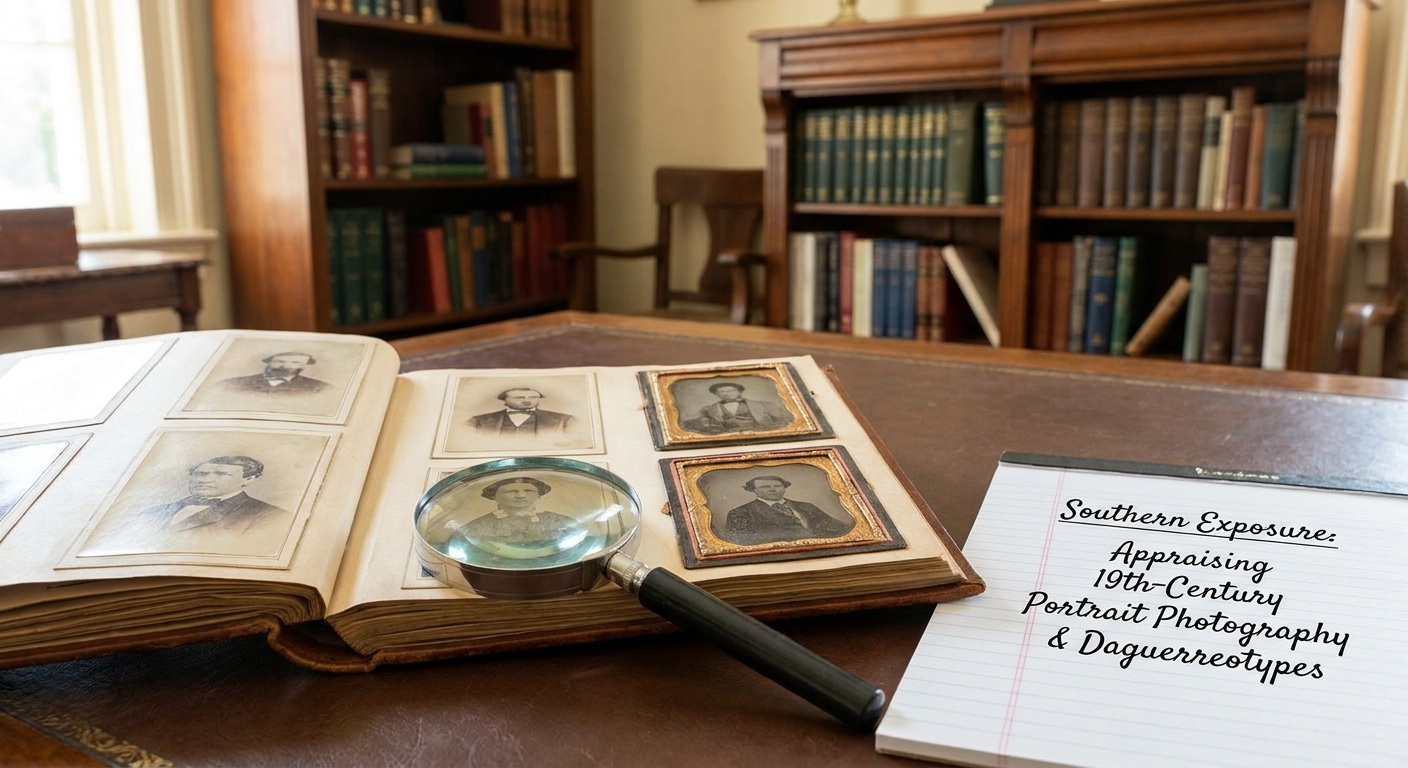 Southern Exposure:
Appraising
19th-Century
Portrait Photography
& Daguerreotypes